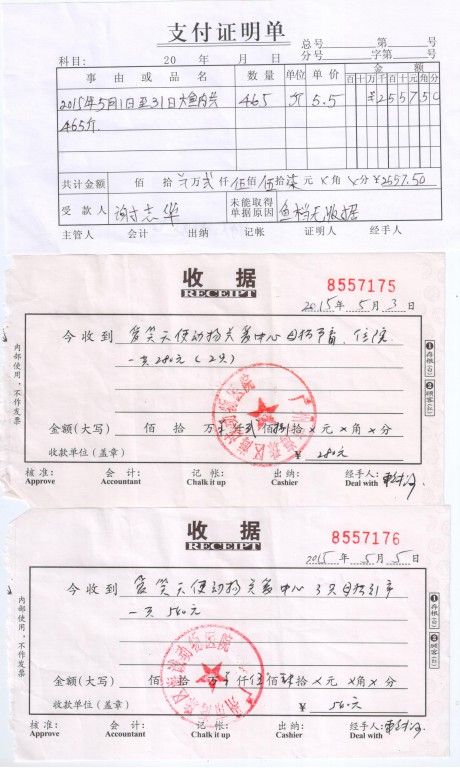 支付证明单
总号 第 号
分号 字第 号
科目: 20 年 月 日
事由或品名 数量 单位 单价 金额
百十万千百十元角分
2015年5月1日至31日大鱼肉共 465 斤 5.5 ¥255750
465斤.
共计金额 佰 拾 万贰仟伍佰伍拾柒元×角×分¥2557.50
受款人 谢志华 未能取得单据原因 鱼档无收据
主管人 会计 出纳 记帐 证明人 经手人
收据
RECEIPT
8557175
2015年5月3日
今收到 爱笑天使动物关爱中心 住院
一共280元(2只)
内部使用,不作发票
①存根(白)
②顾客(红)
金额(大写) 佰 拾 万 仟贰佰捌拾×元×角×分
收款单位(盖章) ¥ 280元
核准: 会计: 记帐: 出纳: 经手人:
Approve Accountant Chalk it up Cashier Deal with
收据
RECEIPT
8557176
2015年5月5日
今收到 爱笑天使动物关爱中心 3只母猫引产
一共560元
内部使用,不作发票
①存根(白)
②顾客(红)
金额(大写) 佰 拾 万 仟伍佰 拾×元×角×分
收款单位(盖章) ¥ 560元
核准: 会计: 记帐: 出纳: 经手人:
Approve Accountant Chalk it up Cashier Deal with